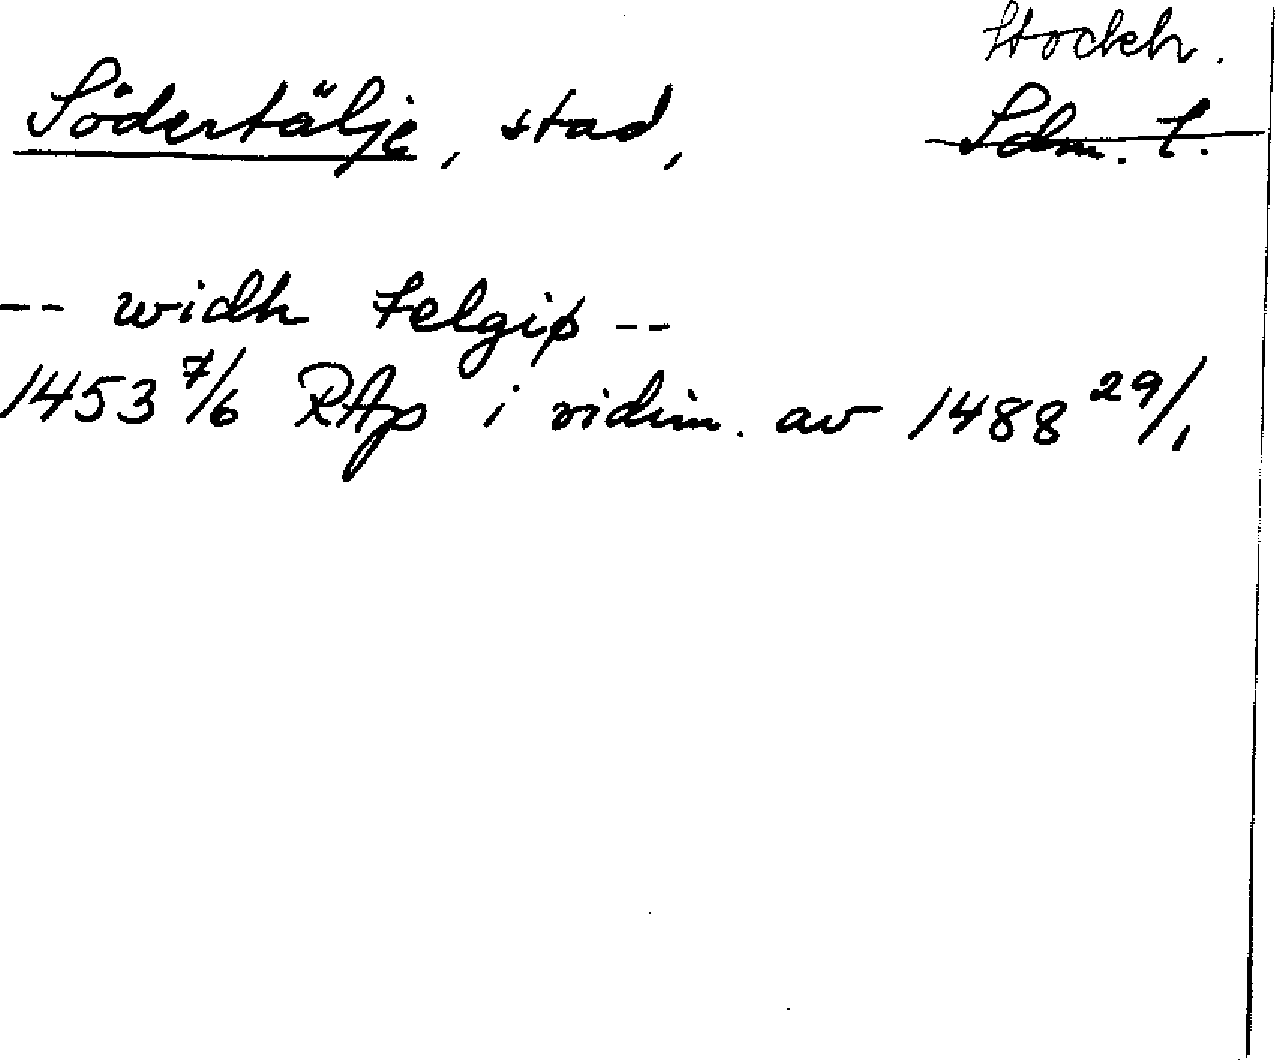 Stockh.
Södertälje, stad, Sdm. l.
-- widh telgiø --
1453 7/6 RAp i vidim. av 1488 29/1